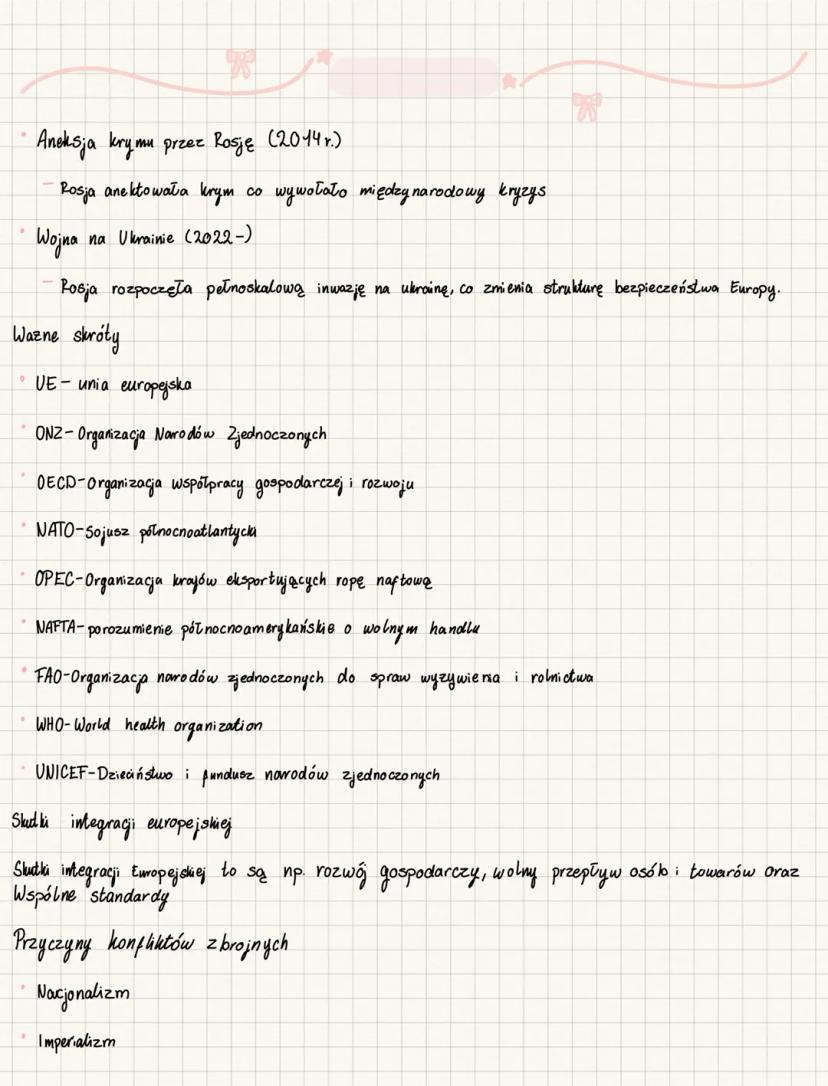 Aneksja krymu przez Rosję (2014r.)
– Rosja anektowała krym co wywołało międzynarodowy kryzys
Wojna na Ukrainie (2022-)
– Rosja rozpoczęła pełnoskalową inwazję na ukrainę, co zmienia strukturę bezpieczeństwa Europy.
Ważne skróty
UE – unia europejska
ONZ – Organizacja Narodów Zjednoczonych
OECD – Organizacja współpracy gospodarczej i rozwoju
NATO – Sojusz północnoatlantycki
OPEC – Organizacja krajów eksportujących ropę naftową
NAFTA – porozumienie północnoamerykańskie o wolnym handlu
FAO – Organizacja narodów zjednoczonych do spraw wyzywienia i rolnictwa
WHO – World health organization
UNICEF – Dzieciństwo i fundusz narodów zjednoczonych
Skutki integracji europejskiej
Skutki integracji Europejskiej to są np. rozwój gospodarczy, wolny przepływ osób i towarów oraz
Wspólne standardy
Przyczyny konfliktów zbrojnych
Nacjonalizm
Imperializm